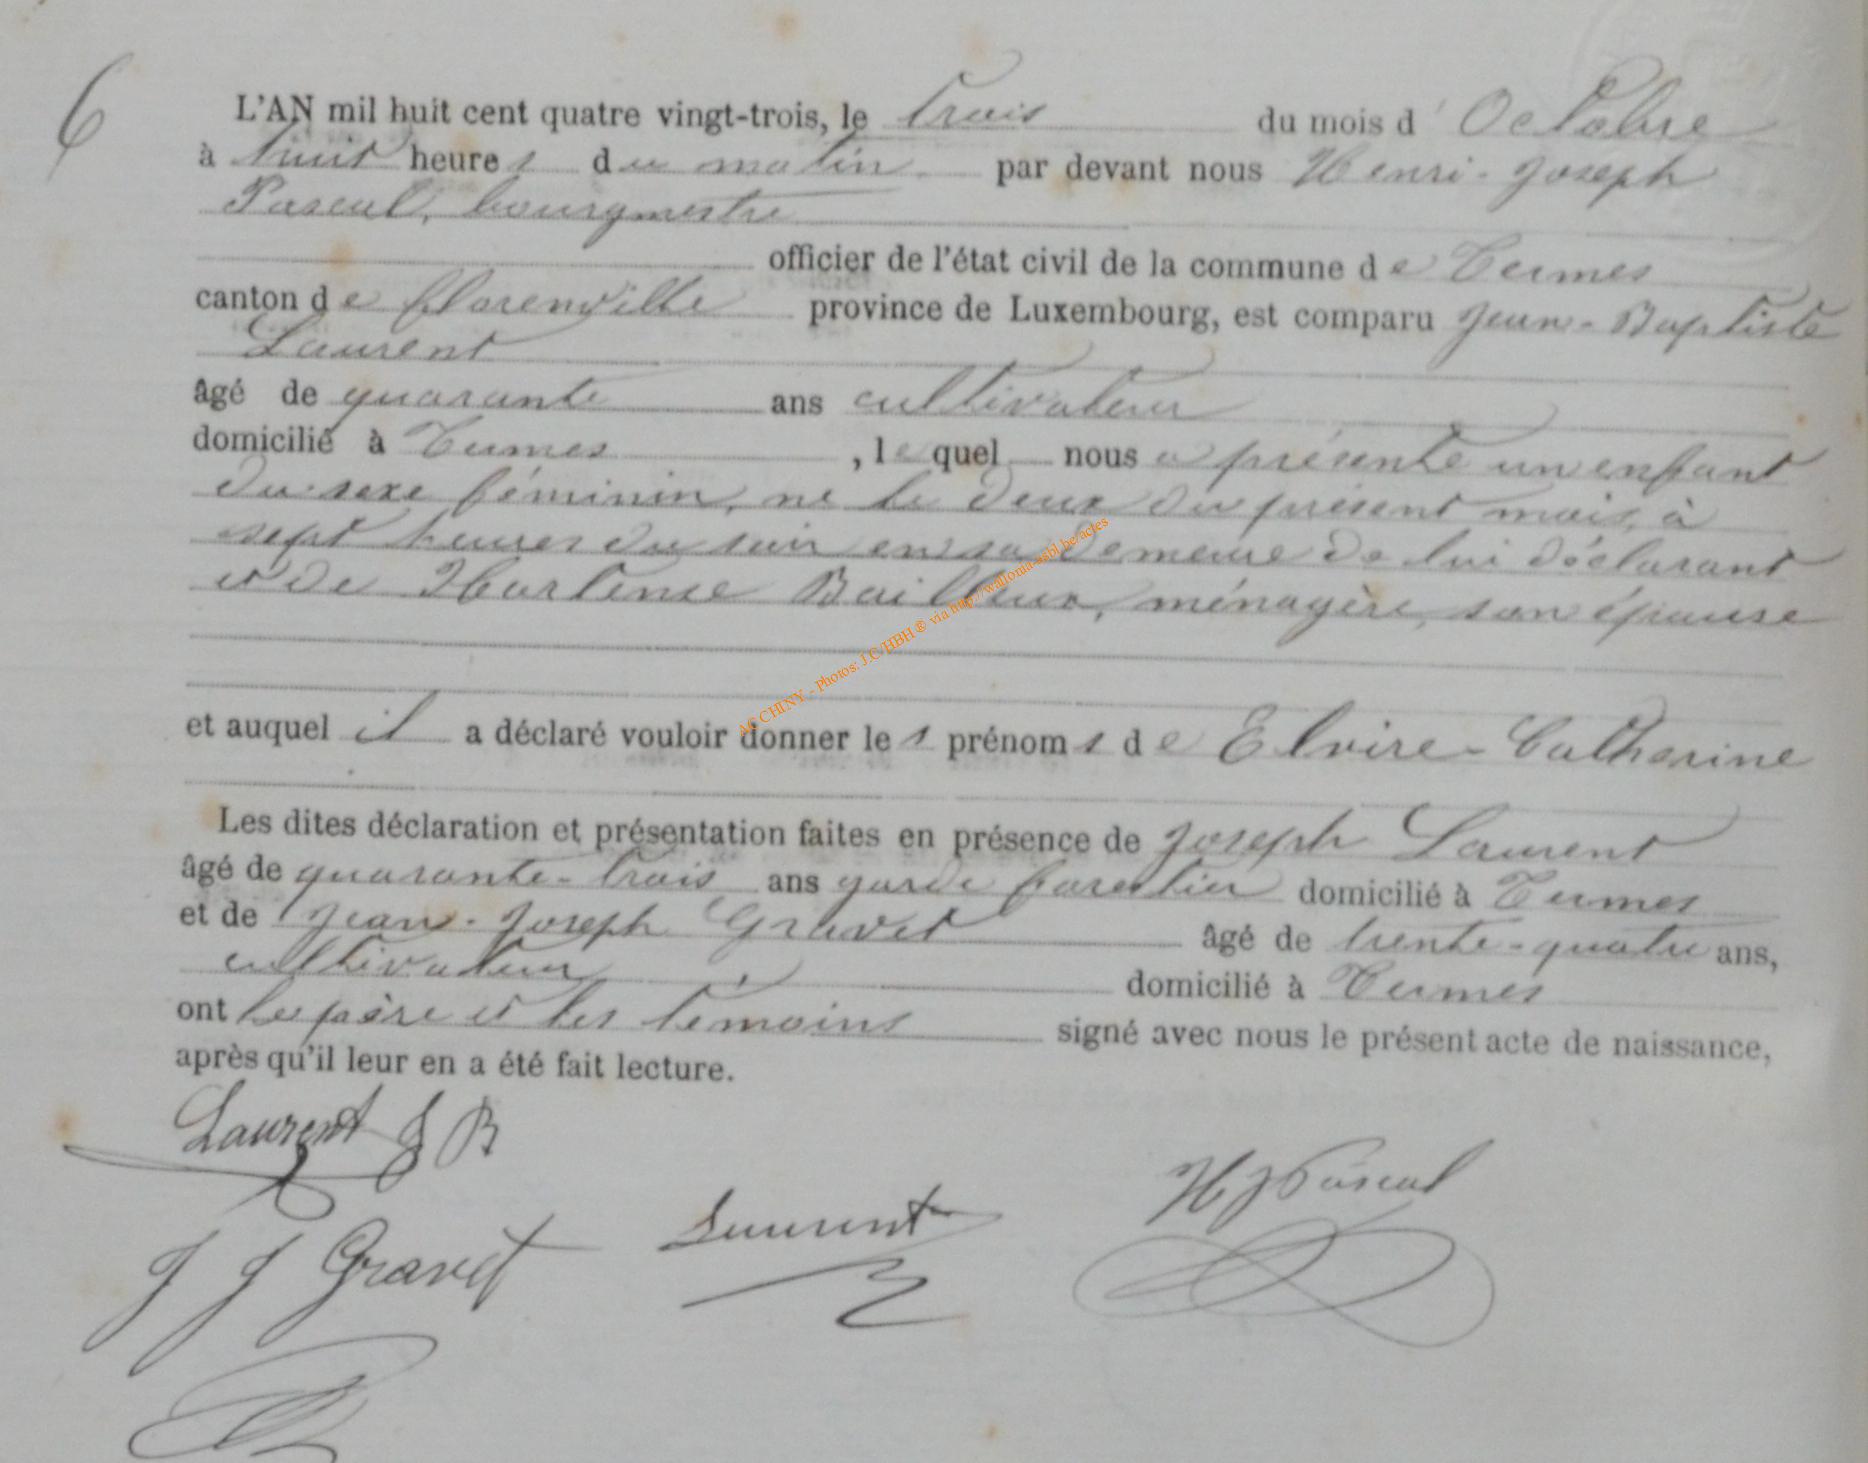 6
L'AN mil huit cent quatre vingt-trois, le trois du mois d'Octobre
à huit heures du matin par devant nous Henri-Joseph
Pascal, bourgmestre
officier de l'état civil de la commune de Termes
canton de florenville province de Luxembourg, est comparu Jean-Baptiste
Laurent
âgé de quarante ans cultivateur
domicilié à Termes, lequel nous a présenté un enfant
du sexe féminin, né le deux du présent mois, à
sept heures du soir en sa demeure de lui déclarant
et de Hortense Bailleux, ménagère, son épouse
et auquel il a déclaré vouloir donner les prénoms de Elvire-Catherine
Les dites déclaration et présentation faites en présence de Joseph Laurent
âgé de quarante-trois ans garde forestier domicilié à Termes
et de Jean-Joseph Gravet âgé de trente-quatre ans,
cultivateur, domicilié à Termes
ont le père et les témoins signé avec nous le présent acte de naissance,
après qu'il leur en a été fait lecture.
Laurent J B
HJ Pascal
Laurent
J J Gravet
AC CHINY - Photos: J.C/HBH ® via http://wallonia-asbl.be/actes